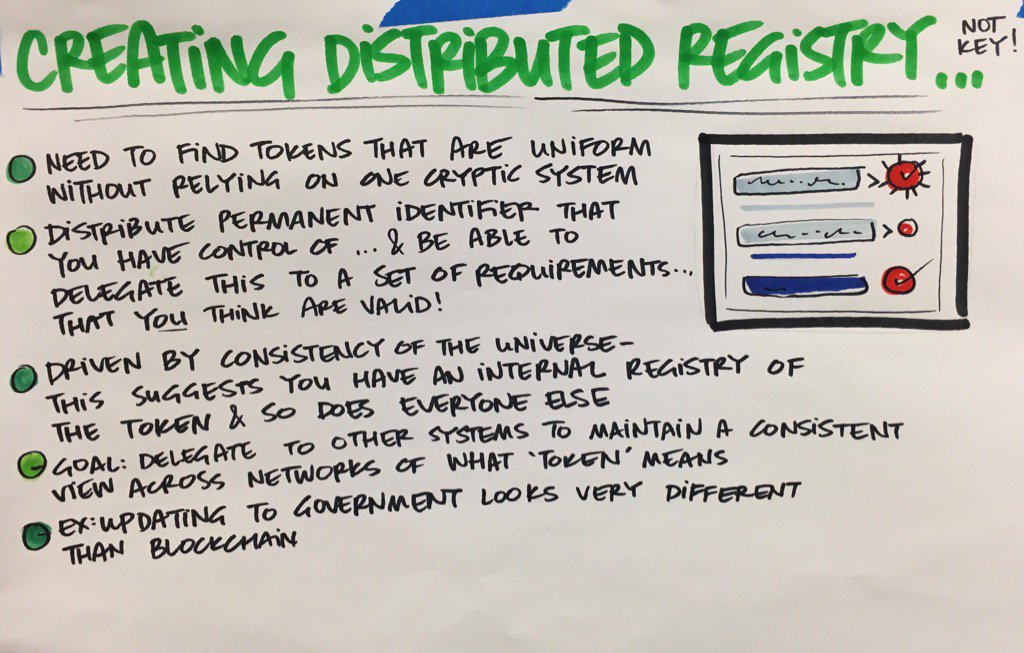 CREATING DISTRIBUTED REGISTRY...
NOT
KEY!
NEED TO FIND TOKENS THAT ARE UNIFORM
WITHOUT RELYING ON ONE CRYPTIC SYSTEM
DISTRIBUTE PERMANENT IDENTIFIER THAT
YOU HAVE CONTROL OF ... & BE ABLE TO
DELEGATE THIS TO A SET OF REQUIREMENTS...
THAT YOU THINK ARE VALID!
DRIVEN BY CONSISTENCY OF THE UNIVERSE-
THIS SUGGESTS YOU HAVE AN INTERNAL REGISTRY OF
THE TOKEN & SO DOES EVERYONE ELSE
GOAL: DELEGATE TO OTHER SYSTEMS TO MAINTAIN A CONSISTENT
VIEW ACROSS NETWORKS OF WHAT 'TOKEN' MEANS
EX: UPDATING TO GOVERNMENT LOOKS VERY DIFFERENT
THAN BLOCKCHAIN